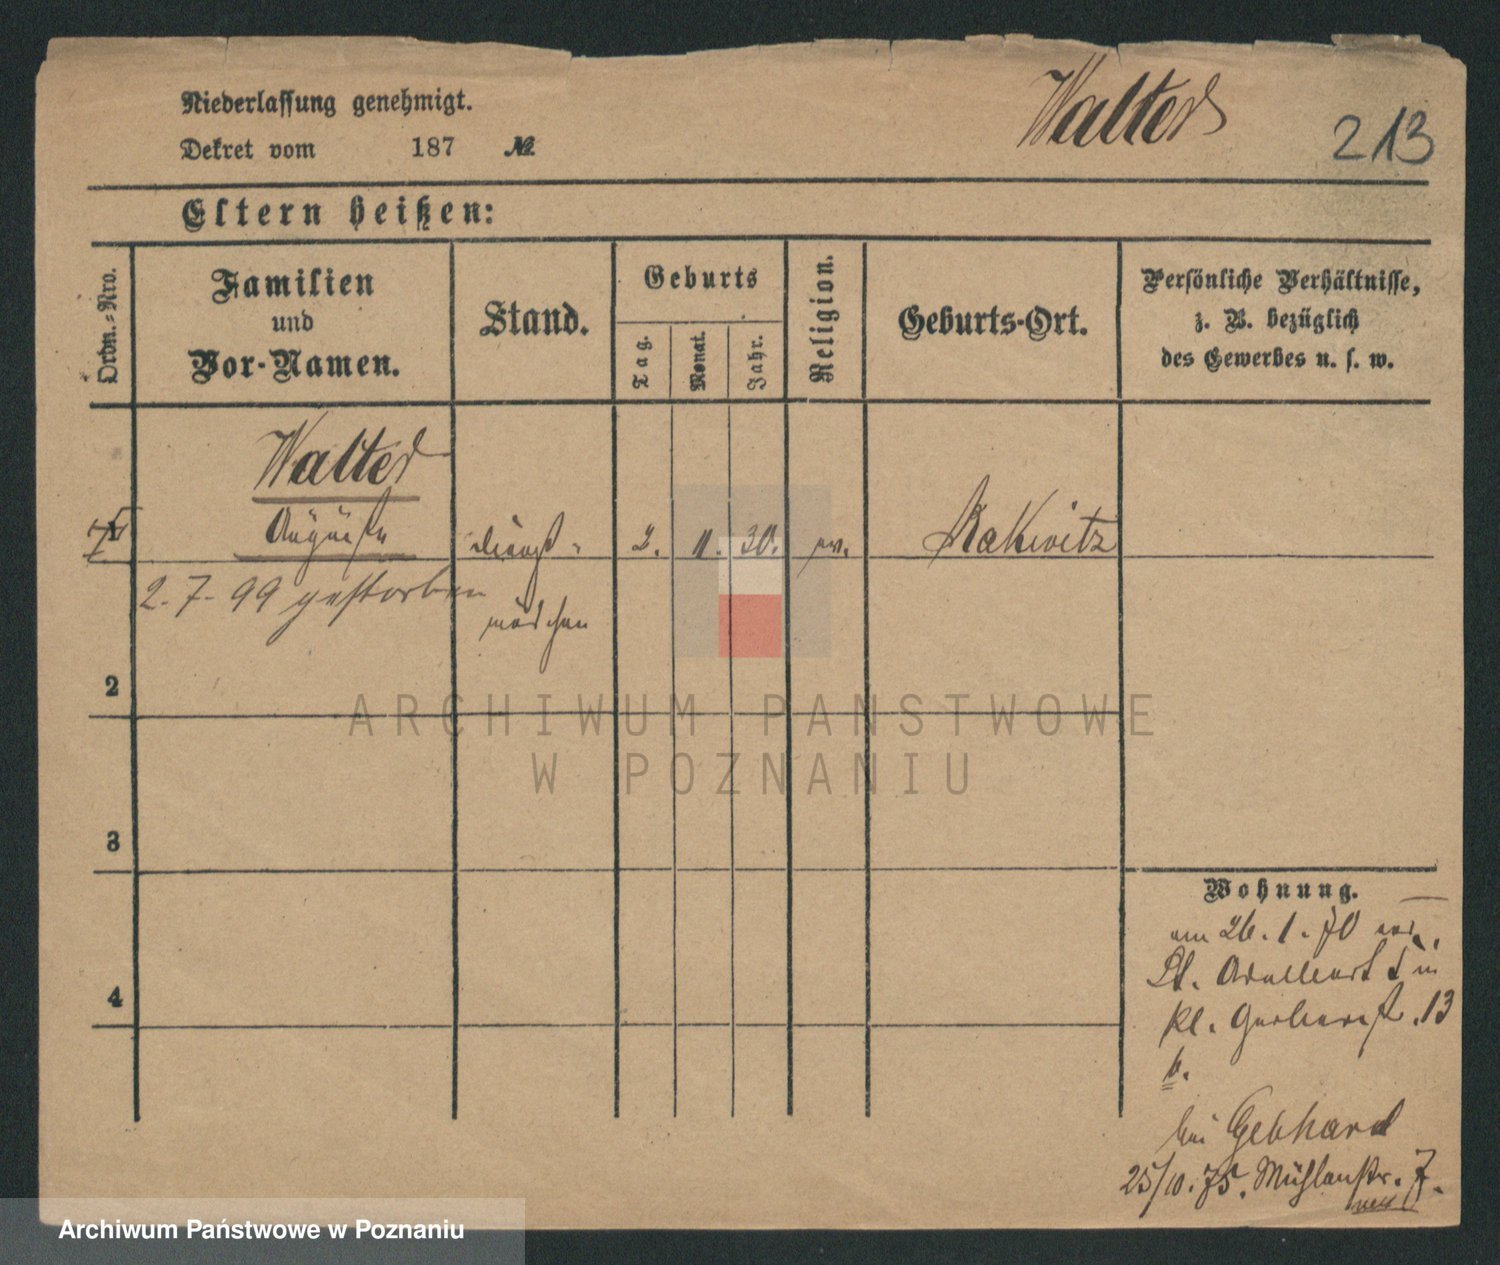 Niederlassung genehmigt.
Dekret vom 187 №
Walter
213
Eltern heißen:
Ordn.-Nro.
Familien
und
Vor-Namen.
Stand.
Geburts
Tag.
Monat.
Jahr.
Religion.
Geburts-Ort.
Persönliche Verhältnisse,
z. B. bezüglich
des Gewerbes u. s. w.
Walter
Auguste Dienst- 2. 11. 30. ev. Rakwitz
2.-7.-99 gestorben
mädchen
2
3
4
Wohnung.
am 26. 1. 70
St. Adalbert 1 in
Kl. Gerberstr. 13
b.
bei Gebhard
25/10. 75. Mühlenstr. 7.
ARCHIWUM PAŃSTWOWE
W POZNANIU
Archiwum Państwowe w Poznaniu